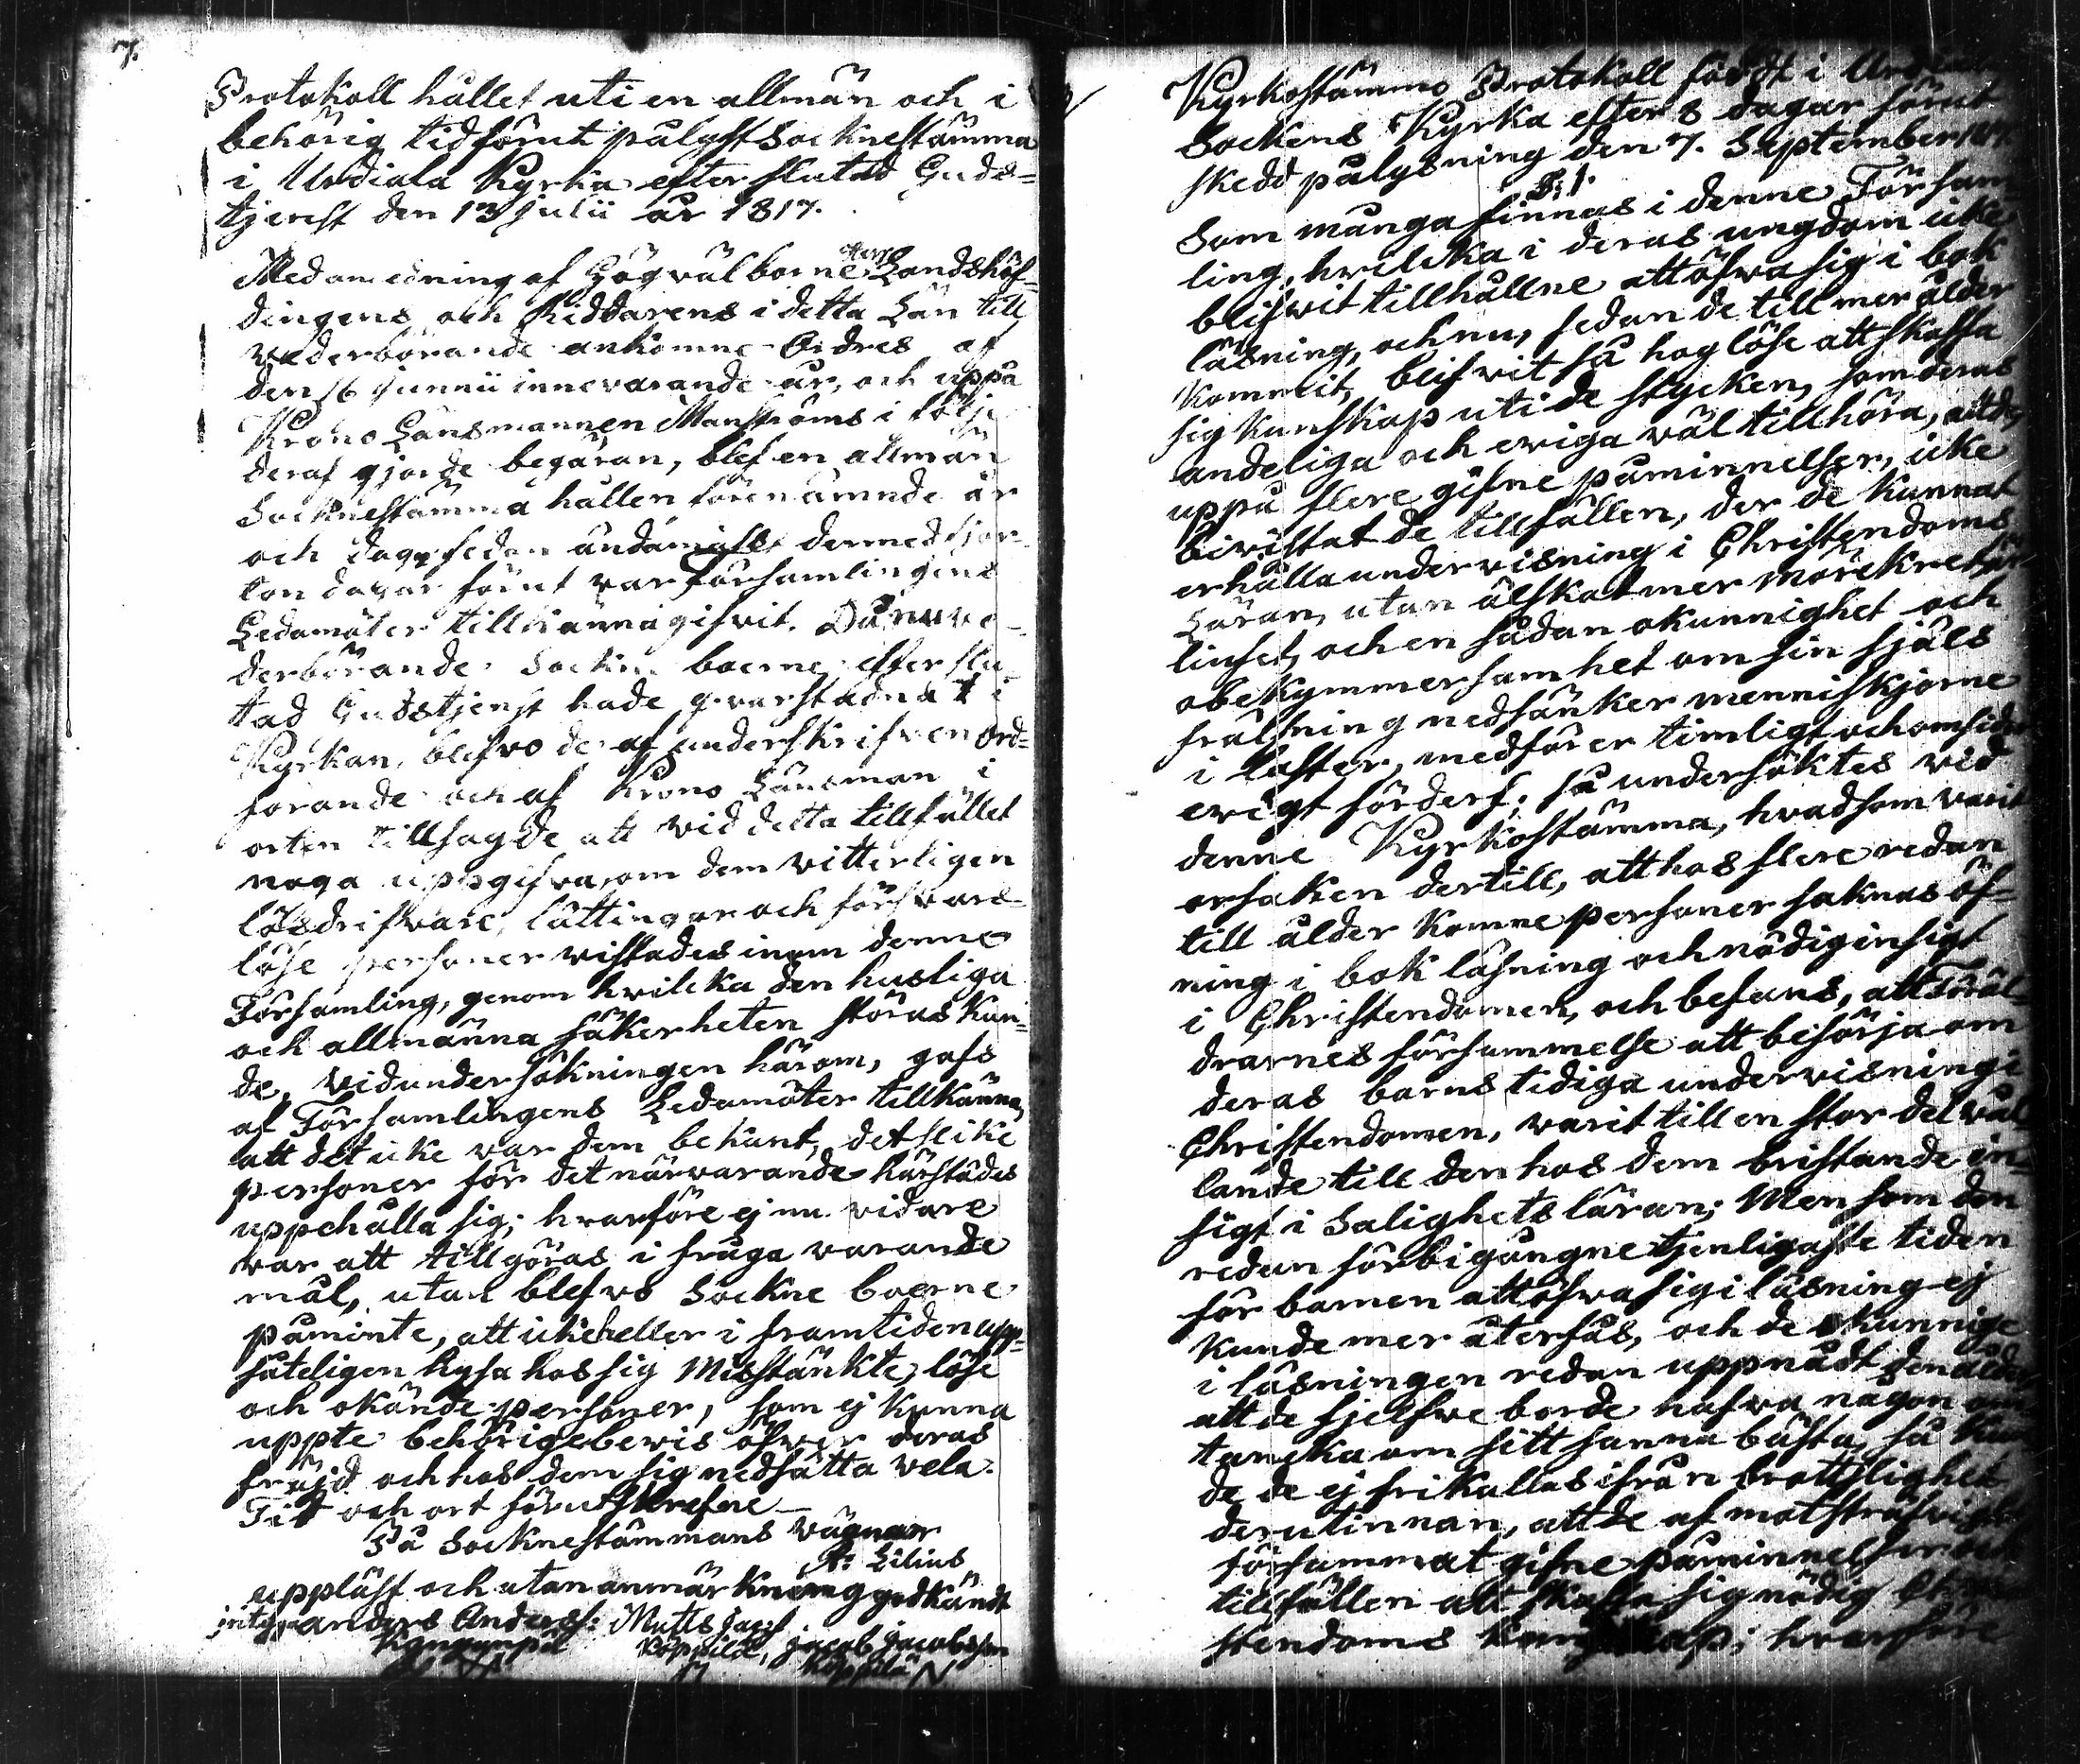 7.
Protokoll hållet uti en allmän och i
behörig tid förut pålyst Socknestämma
i Urdiala Kyrka efter slutad Guds=
tjenst den 13 Julii år 1817.
Med anledning af Högvälborne Herr Landshöf=
dingens och Riddarens i detta Län till
vederbörande ankomne Ordres af
den 16 Junii innevarande år, och uppå
Krono Länsmannen Manströms i följe
deraf gjorde begäran, blef en allmän
Socknestämma hållen förenämnde år
och dag, sedan ändamålet dermed fjor=
ton dagar förut var församlingens
Ledamöter tillkännagifvit. Då nu ve=
derbörande Sockne boerne efter slu=
tad Gudstjenst hade qvarstadnat i
Kyrkan, blefvo de af underskrifven Ord=
förande och af Krono Länsman i
orten tillsagde att vid detta tillfället
noga uppgifva, om dem vitterligen
lösdrifvare, lättingar och försvars=
löse personer vistades inom denne
Församling, genom hvilcka den husliga
och allmänna säkerheten störas kun=
de. Vid undersökningen härom, gafs
af Församlingens Ledamöter tillkänna,
att det icke var dem bekant, det slike
personer för det närvarande härstädes
uppehålla sig; hvarföre ej nu vidare
var att tillgöras i fråga varande
mål, utan blefvo Sockne boerne
påminte, att icke heller i framtiden upp=
såteligen hysa hos sig Misstänkte, löse
och okände personer, som ej kunna
uppte behörige bevis öfver deras
fräjd och hos dem sig nedsätta vela.
Tid och ort förutskrefne
På Socknestämmans vägnar
A: Lilius
uppläst och utan anmärkning godkändt
intyga anders Anderss: Matts Jacobs: Jacob Jacobsson
Köppilä, Köppilä
Kyrkostämmo Protokoll fördt i Urdiala
Sockens Kyrka efter 8 dagar förut
skedd pålysning den 7. September 1817.
§: 1
Som många finnas i denne Försam=
ling, hvilcka i deras ungdom icke
blifvit tillhållne att öfva sig i bok
läsning, och nu, sedan de till mer ålder
kommit, blifvit så hoglöse att skaffa
sig kunskap uti de stycken, som deras
andeliga och eviga väl tillhöra, att de,
uppå flere gifne påminnelser, icke
bivistat de tillfällen, der de kunnat
erhålla undervisning i Christendoms
Läran, utan älskat mer mörckret än
liuset, och en sådan okunnighet och
obekymmersamhet om sin själs
frälsning nedsänker menniskjorne
i laster, medförer timligt och omsider
evigt förderf; så undersöktes vid
denne Kyrkostämma, hvad som varit
orsaken dertill, att hos flere redan
till ålder komne personer saknas öf=
ning i bok läsning och nödig insigt
i Christendomen, och befans, att Föräl=
drarnes försummelse att besörja om
deras barns tidiga undervisning i
Christendomen, varit till en stor del vål=
lande till den hos dem bristande in=
sigt i Salighets läran; Men som den
redan förbigångne tjenligaste tiden
för barnen att öfva sig i läsning ej
kunde mer återfås, och de okunnige
i läsningen redan uppnådt den ålder
att de sjelfve borde hafva någon om=
tancka om sitt sanna bästa, så kun=
de de ej frikallas ifrån brottslighet
derutinnan, att de af motsträfvighet
försummat gifne påminnelser och
tillfällen att skaffa sig nödig Chri=
stendoms kunskap; hvarföre